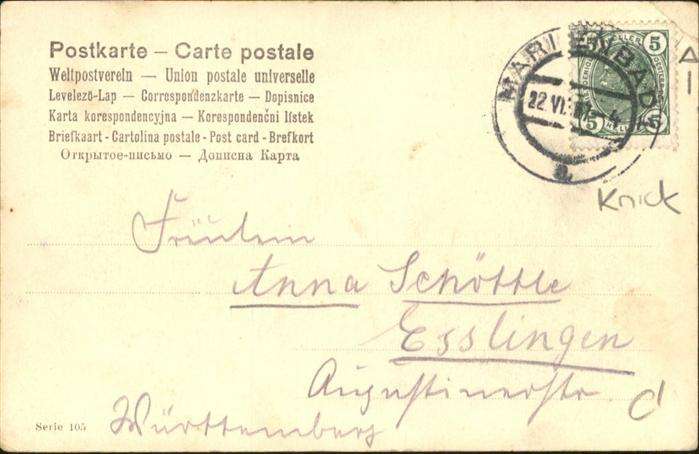 Postkarte – Carte postale
Weltpostverein — Union postale universelle
Levelező-Lap — Correspondenzkarte — Dopisnice
Karta korespondencyjna — Korespondenční lístek
Briefkaart - Cartolina postale - Post card - Brefkort
Открытое-письмо — Дописна Карта
5 5
5 5
HELLER
MARIENBAD
22 VI
Knick
Fräulein
Anna Schöttle
Esslingen
Augustinerstr.
Württemberg
Serie 105